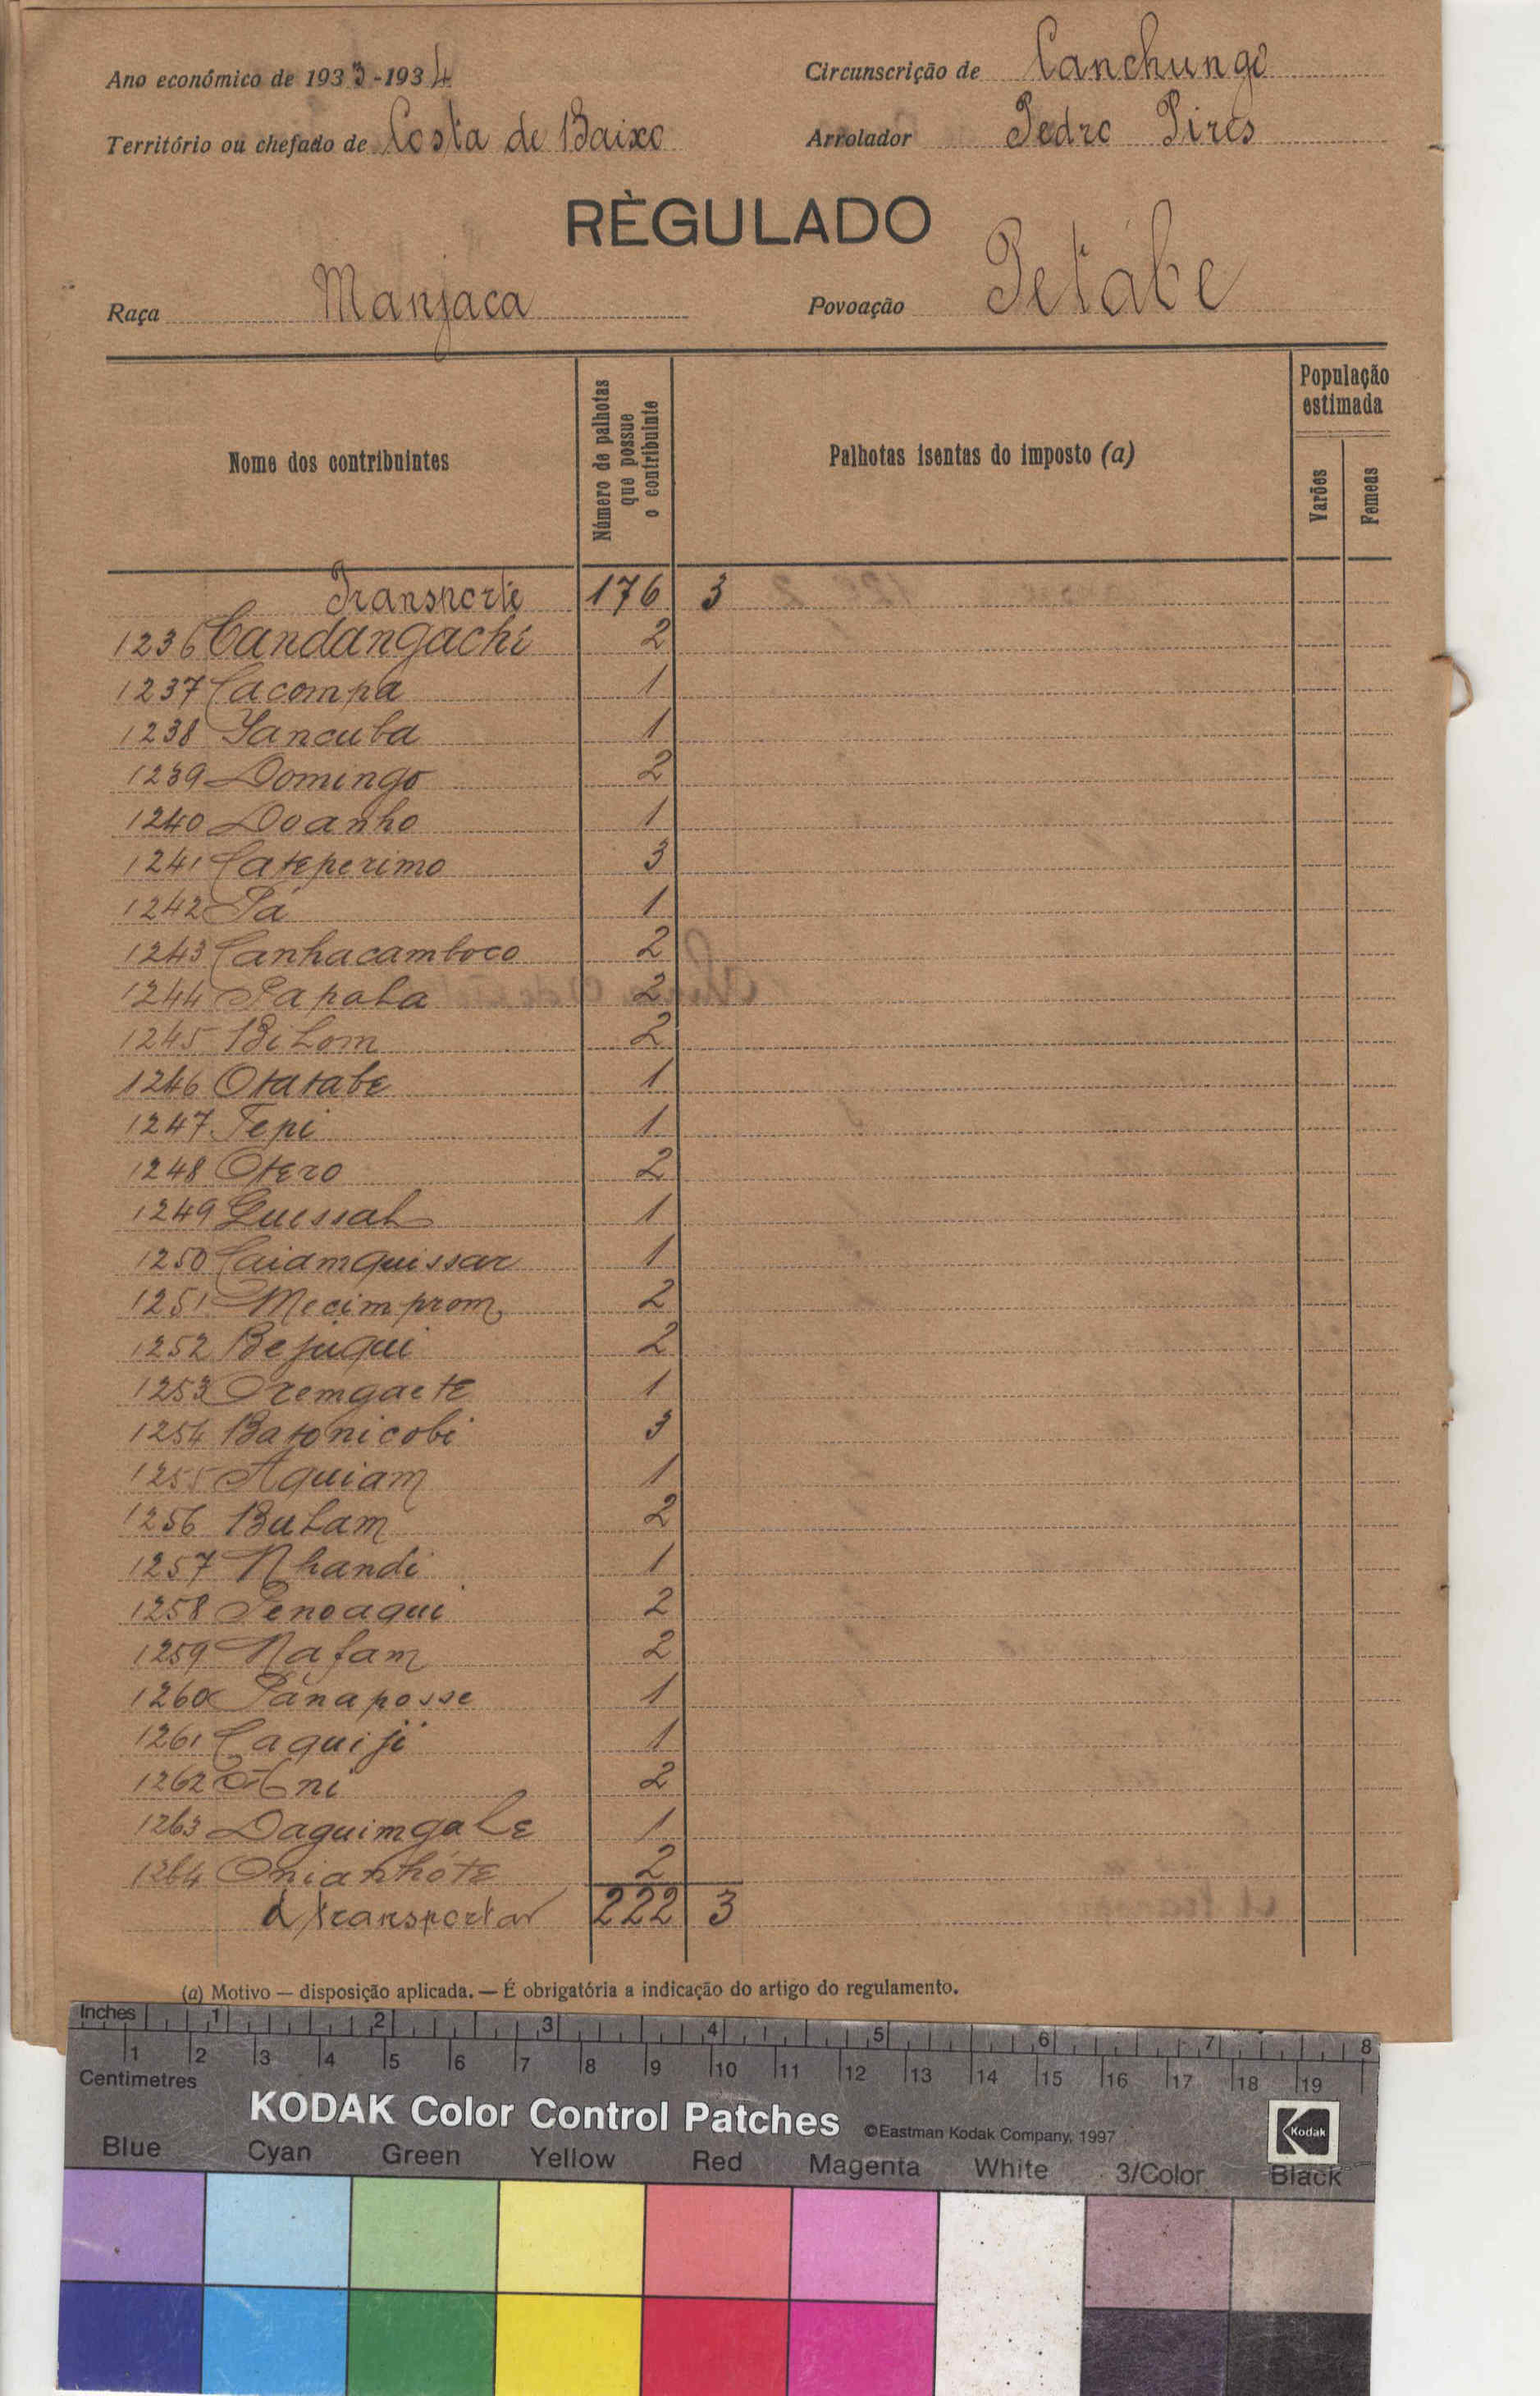 Ano económico de 1933-1934 Circunscrição de Canchungo
Território ou chefado de Costa de Baixo Arrolador Pedro Pires
RÈGULADO
Raça Manjaca Povoação Petábe
Nome dos contribuintes Número de palhotas que possue o contribuinte Palhotas isentas do imposto (a) População estimada Varões Femeas
Transporte 176 3
1236 Candangachi 2
1237 Cacompa 1
1238 Yancuba 1
1239 Domingo 2
1240 Doanho 1
1241 Cateperimo 3
1242 Pá 1
1243 Canhacamboco 2
1244 Papala 2
1245 Bilom 2
1246 Otatabe 1
1247 Tepi 1
1248 Otero 2
1249 Guessal 1
1250 Caiamquissar 1
1251 Mecimprom 2
1252 Bejuqui 2
1253 Oremgaete 1
1254 Batonicobi 3
1255 Aquiam 1
1256 Bulam 2
1257 Nhandi 1
1258 Penoaqui 2
1259 Nafam 2
1260 Pánaposse 1
1261 Caquiji 1
1262 2
1263 Daguimgale 1
1264 Onianhóte 2
A transportar 222 3
(a) Motivo — disposição aplicada. — É obrigatória a indicação do artigo do regulamento.
Inches 1 2 3 4 5 6 7 8
1 2 3 4 5 6 7 8 9 10 11 12 13 14 15 16 17 18 19
Centimetres
KODAK Color Control Patches ©Eastman Kodak Company, 1997 Kodak
Blue Cyan Green Yellow Red Magenta White 3/Color Black